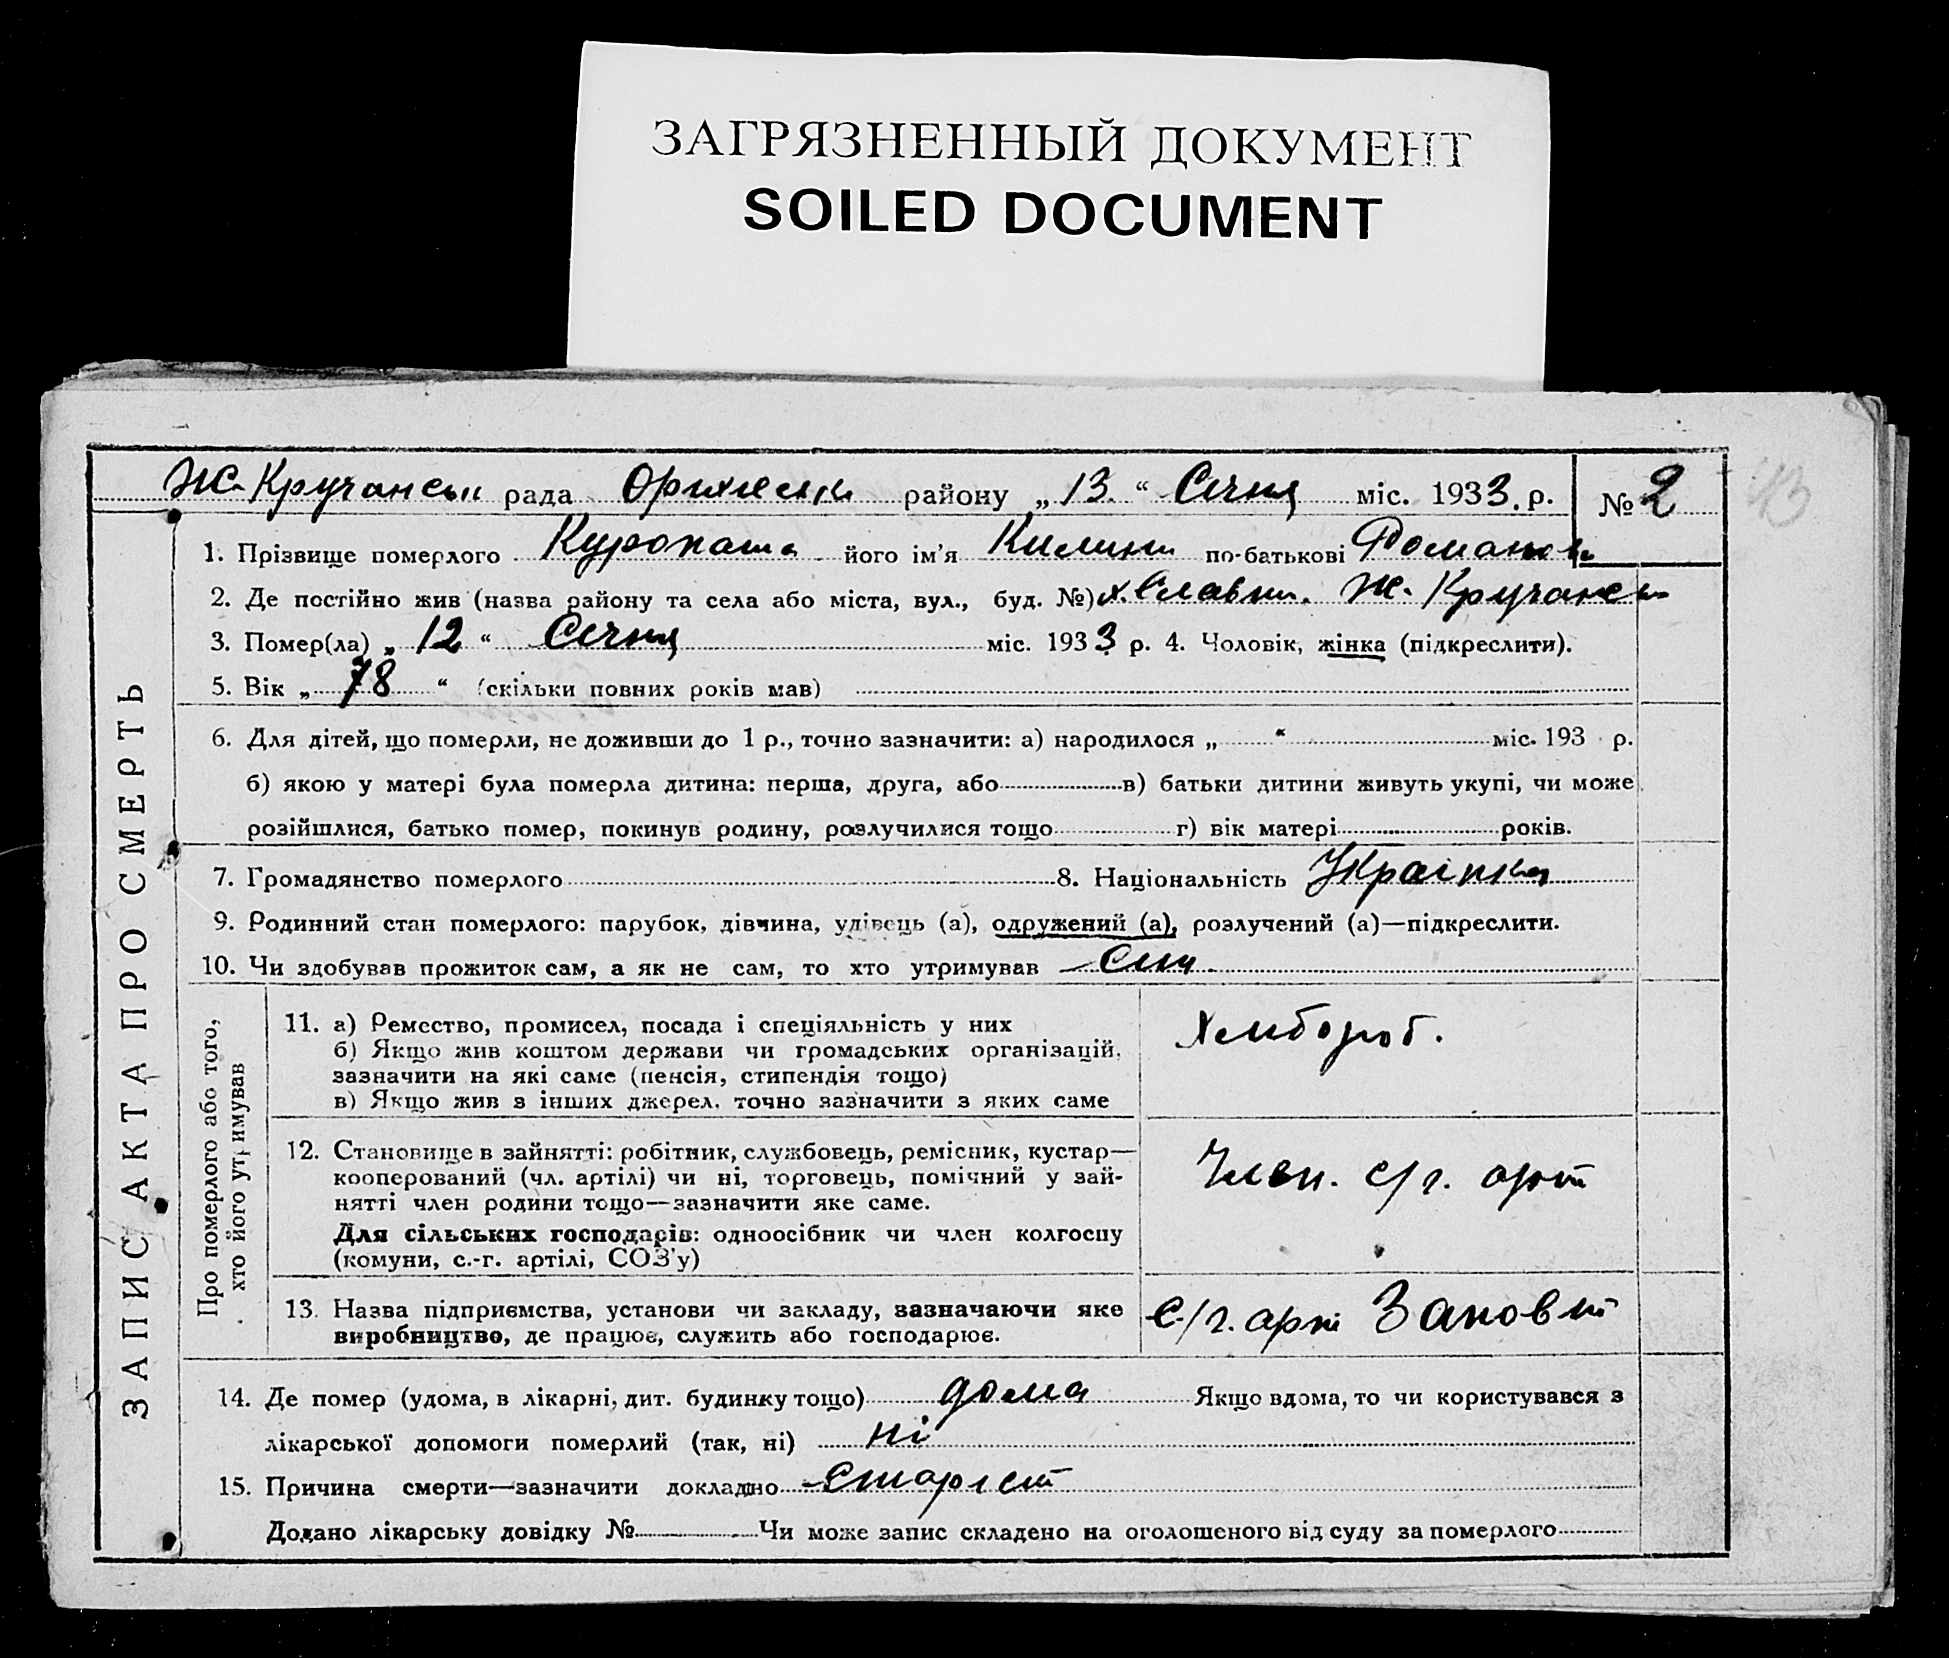 ЗАГРЯЗНЕННЫЙ ДОКУМЕНТ
SOILED DOCUMENT
Ж-Кручанськ рада Оржицьк району „13“ Січня міс. 1933 р. № 2
43
ЗАПИС АКТА ПРО СМЕРТЬ
1. Прізвище померлого Куропата його ім'я Килина по-батькові Романов
2. Де постійно жив (назва району та села або міста, вул., буд. №) х. Славки. Ж. Кручанськ
3. Помер(ла) „12“ Січня міс. 1933 р. 4. Чоловік, жінка (підкреслити).
5. Вік „78“ (скільки повних років мав)
6. Для дітей, що померли, не доживши до 1 р., точно зазначити: а) народилося „ “ міс. 193 р.
б) якою у матері була померла дитина: перша, друга, або в) батьки дитини живуть укупі, чи може
розійшлися, батько помер, покинув родину, розлучилися тощо г) вік матері років.
7. Громадянство померлого 8. Національність Українка
9. Родинний стан померлого: парубок, дівчина, удівець (а), одружений (а), розлучений (а)—підкреслити.
10. Чи здобував прожиток сам, а як не сам, то хто утримував Син
Про померлого або того,
хто його утримував
11. а) Ремество, промисел, посада і спеціяльність у них
б) Якщо жив коштом держави чи громадських організацій,
зазначити на які саме (пенсія, стипендія тощо)
в) Якщо жив з інших джерел, точно зазначити з яких саме
Хлібороб.
12. Становище в зайнятті: робітник, службовець, ремісник, кустар—
кооперований (чл. артілі) чи ні, торговець, помічний у зай-
нятті член родини тощо—зазначити яке саме.
Для сільських господарів: одноосібник чи член колгоспу
(комуни, с.-г. артілі, СОЗ'у)
Член. с/г. арт
13. Назва підприємства, установи чи закладу, зазначаючи яке
виробництво, де працює, служить або господарює.
С/г. арт Заповіт
14. Де помер (удома, в лікарні, дит. будинку тощо) дома Якщо вдома, то чи користувався з
лікарської допомоги померлий (так, ні) ні
15. Причина смерти—зазначити докладно старіст
Додано лікарську довідку № Чи може запис складено на оголошеного від суду за померлого